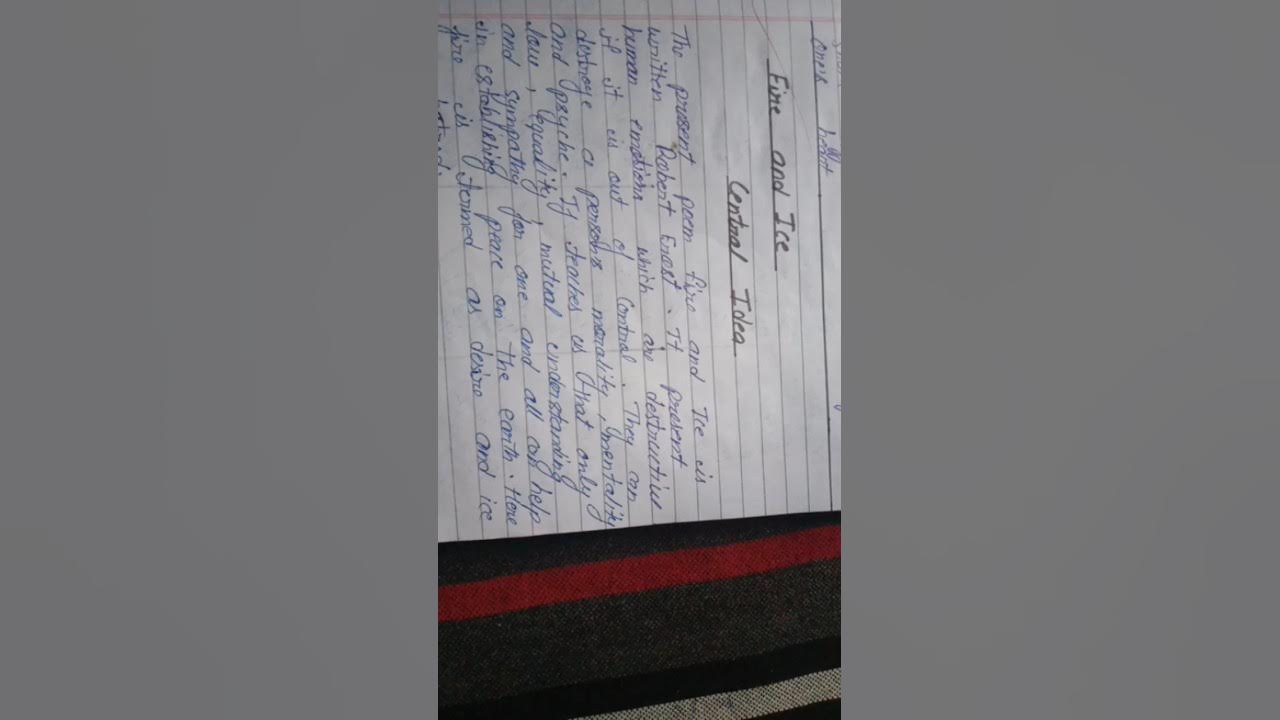 one's heart
Fire and Ice
Central Idea
The present poem fire and Ice is
written Robert Frost. It present
human emotions which are destructive
if it is out of Control. They can
destroye a person's morality, mentality
and psyche. It teaches us that only
love, equality, mutual understanding
and sympathy for one and all can help
in establishing peace on the earth. Here
fire is termed as desire and ice